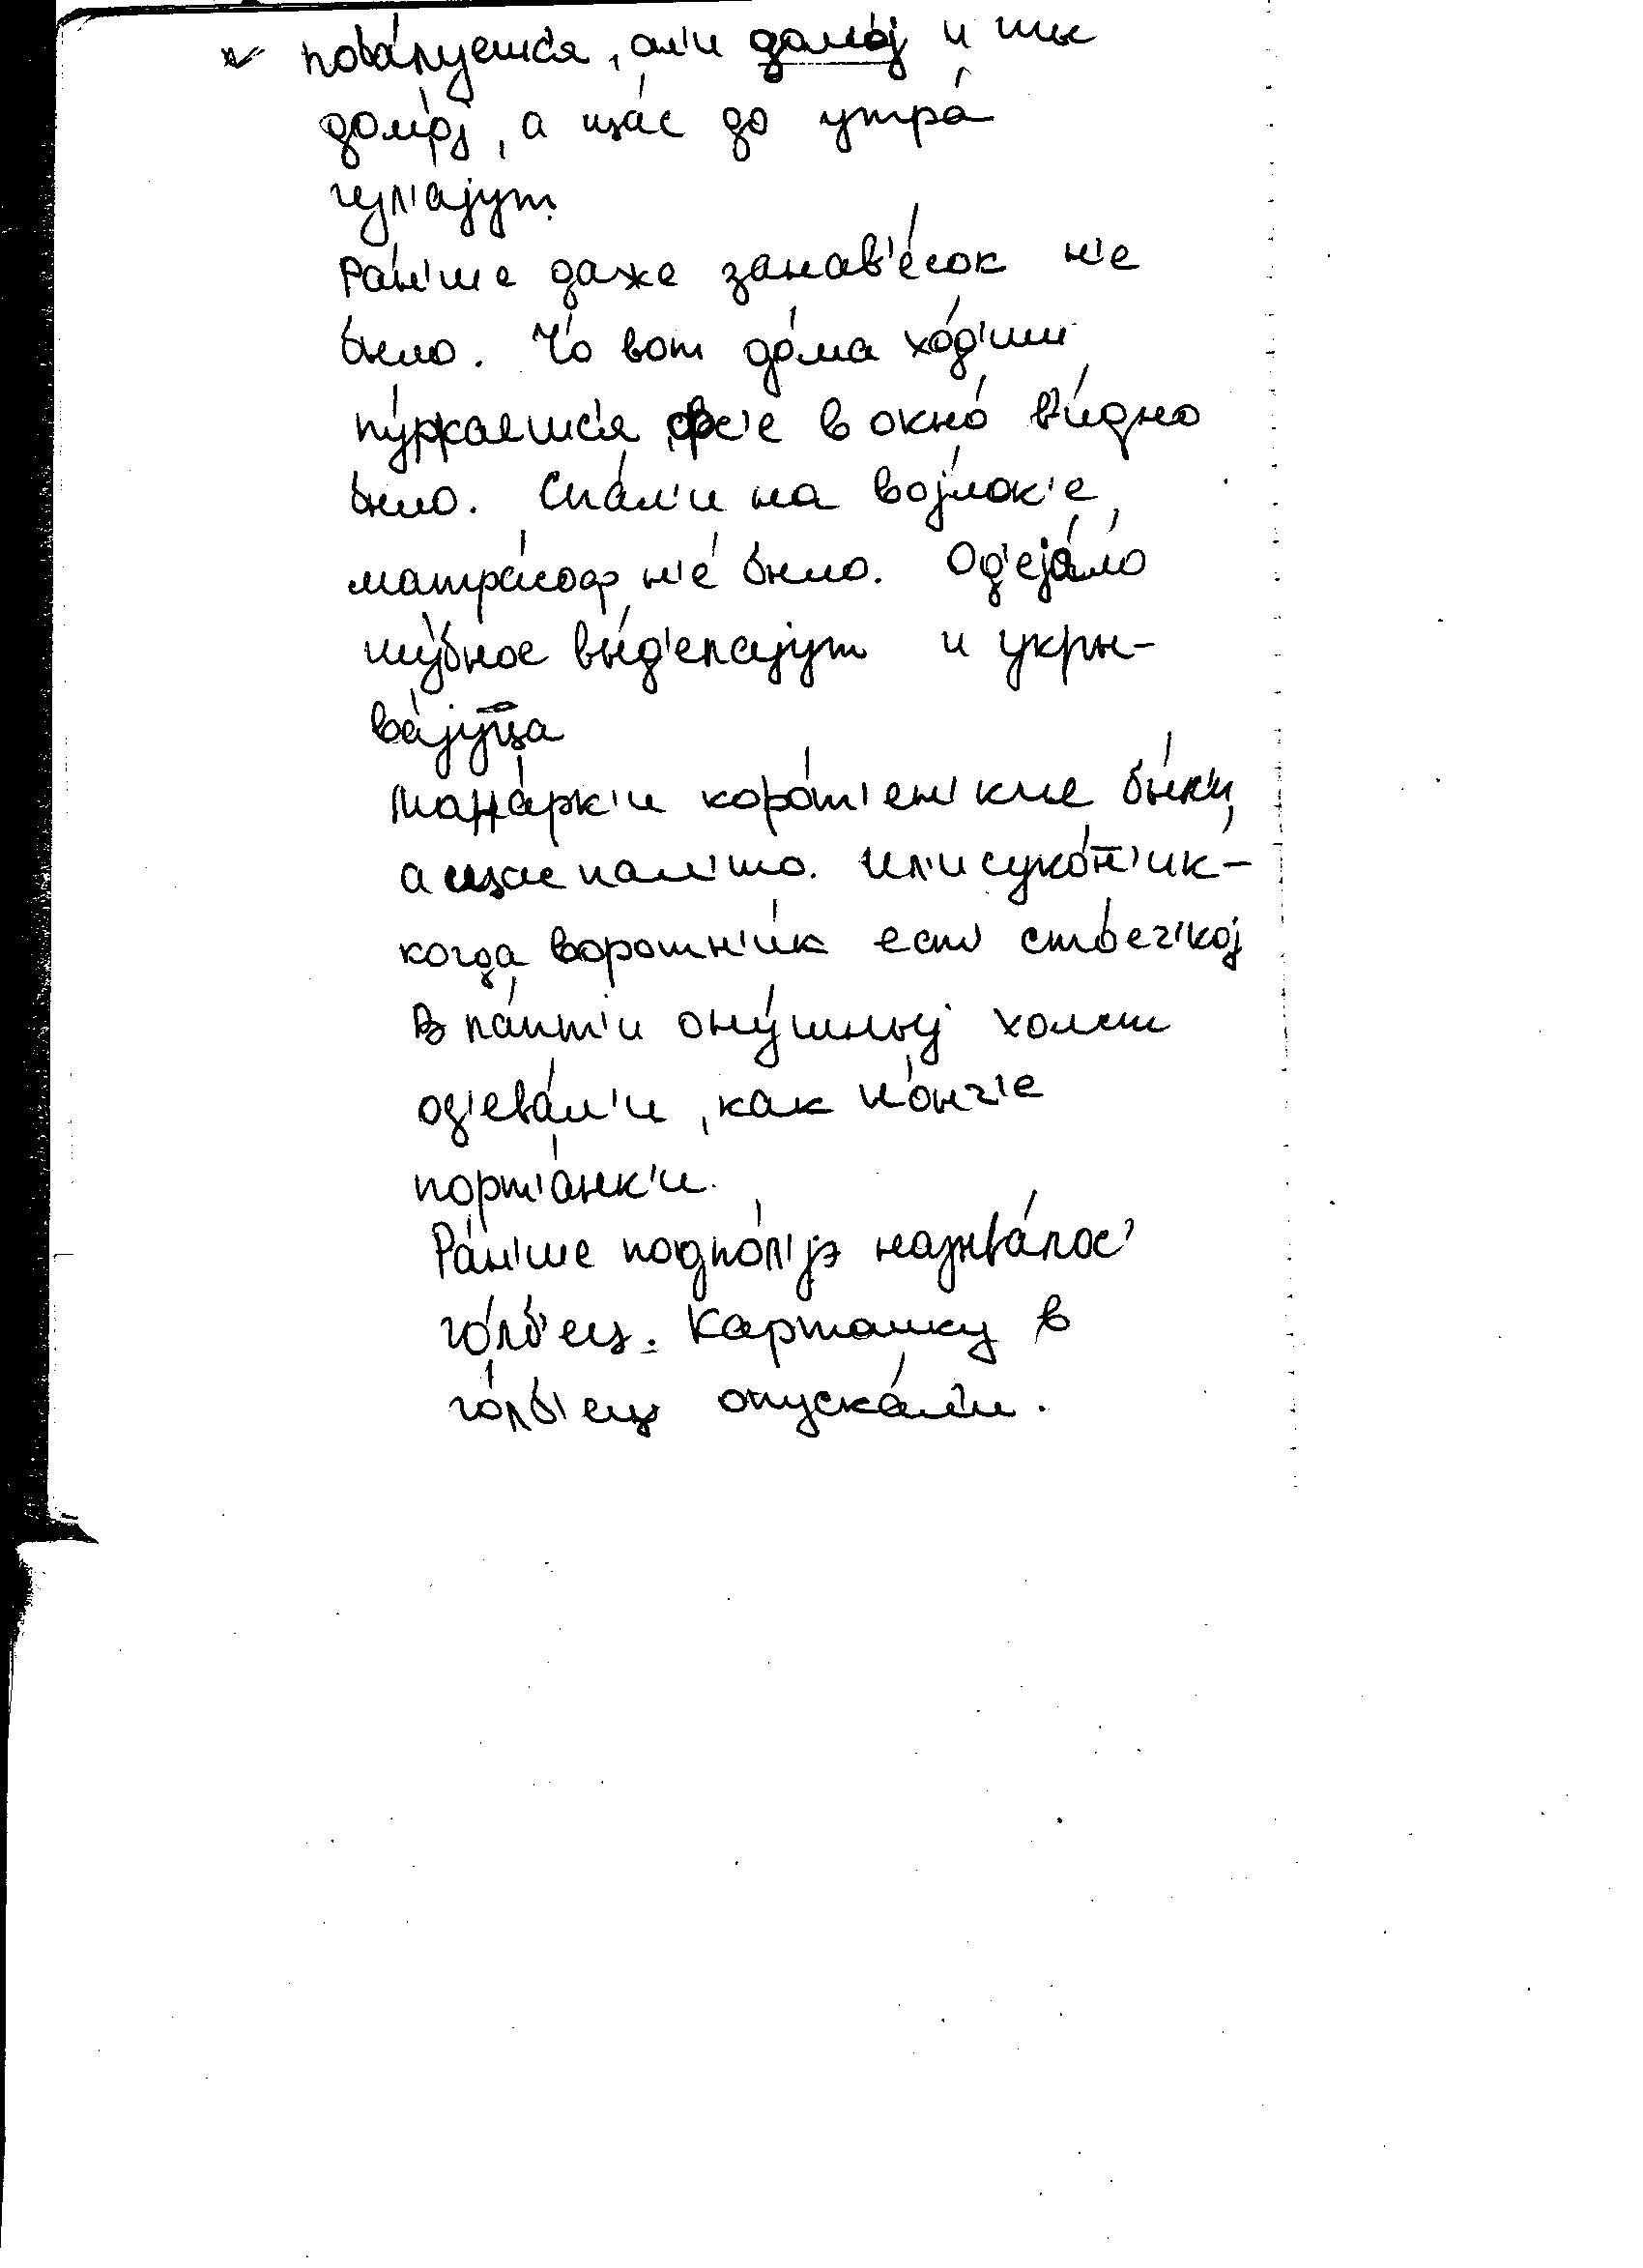 пова́луешс'я, ал'и домо́j и ты
домо́j, а ща́с до утра́
гул'а́jут.
Ра́н'ше даже занав'е́сок н'е
было. Чо́ вот до́ма хо́д'иш
пу́ркаешс'я, фс'е в окно́ ви́дно
было. Спа́л'и на во́jлок'е,
матра́соф н'е́ было. Од'еjа́ло
шу́бное вы́д'елаjут и укры-
ва́jуц̄а
Мона́рк'и коро́т'ен'кие бы́л'и,
а щас пал'то. Ил'и суко́н̄'ик -
когда воротн'и́к ест' сто́еч'коj
В ла́пт'и ону́шныj холст
од'ева́л'и, как но́нч'е
порт'а́нк'и.
Ра́н'ше подпо́л'jэ называ́лос'
го́лб'ец. Картошку в
го́лб'ец опуска́л'и.